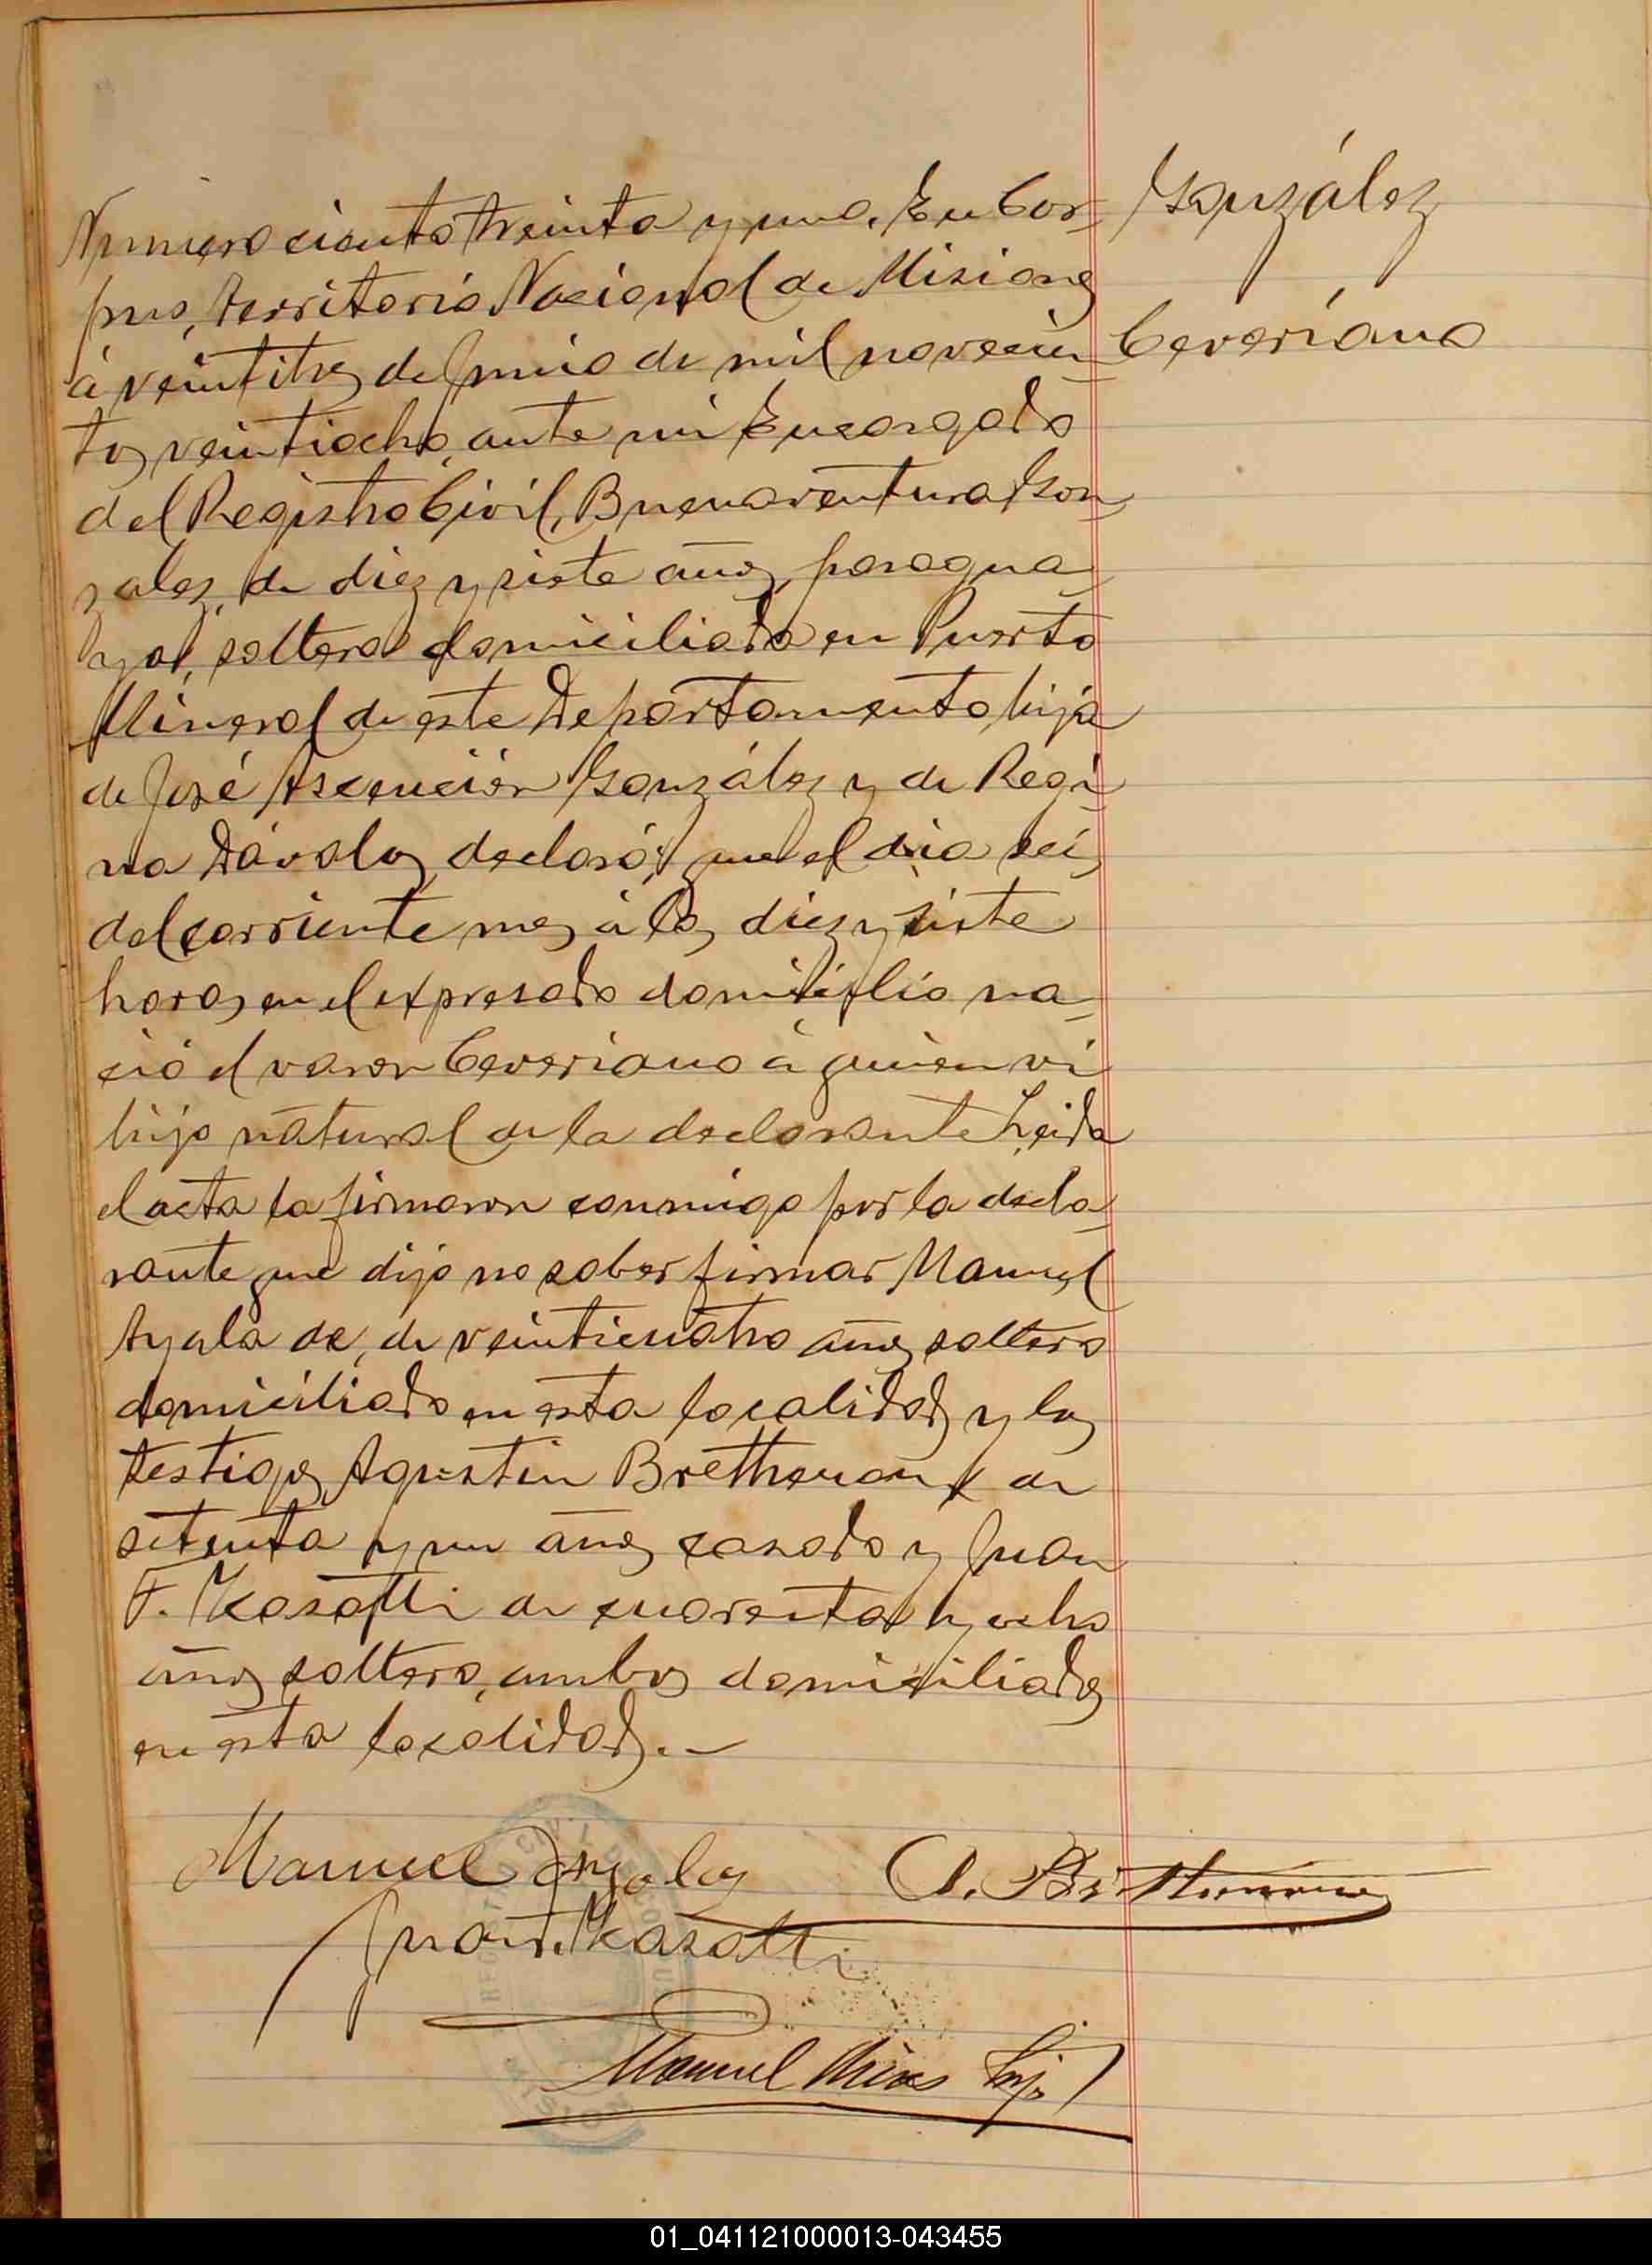 Numero ciento treinta y uno. En Cor-
pus, territorio Nacional de Misiones
á veintitres de Junio de mil novecien-
tos veintiocho, ante mi Encargado
del Registro Civil, Buenaventura Gon-
zalez, de diez y siete años, paragua-
ya, soltera domiciliada en Puerto
Mineral de este Departamento hija
de José Ascención González y de Regi-
na Dávalos, declaró: que el dia seis
del corriente mes á las diez y siete
horas en el expresado domicilio na-
ció el varon Ceveriano á quien vi
hijo natural de la declarante Leida
el acta la firmaron conmigo por la decla-
rante que dijo no saber firmar Manuel
Ayala de, de veinticuatro años soltero
domiciliado en esta localidad y los
testigos Agustin de
setenta y un años casado y Juan
F. Kasatti de cuarenta y ocho
años soltero, ambos domiciliados
en esta localidad.-
González
Ceveriano
Manuel Ayala
A.
Juan F. Kasatti
Manuel hijo
REGISTRO CIVIL
01_041121000013-043455